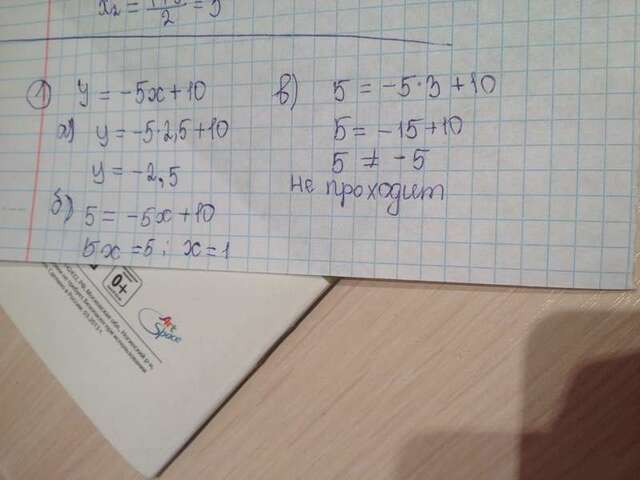 x₂ = 2 = 3
① y = -5x+10
а) y = -5·2,5+10
y = -2,5
б) 5 = -5x+10
5x = 5; x = 1
в) 5 = -5·3+10
5 = -15+10
5 ≠ -5
не проходит
0+
Art Space